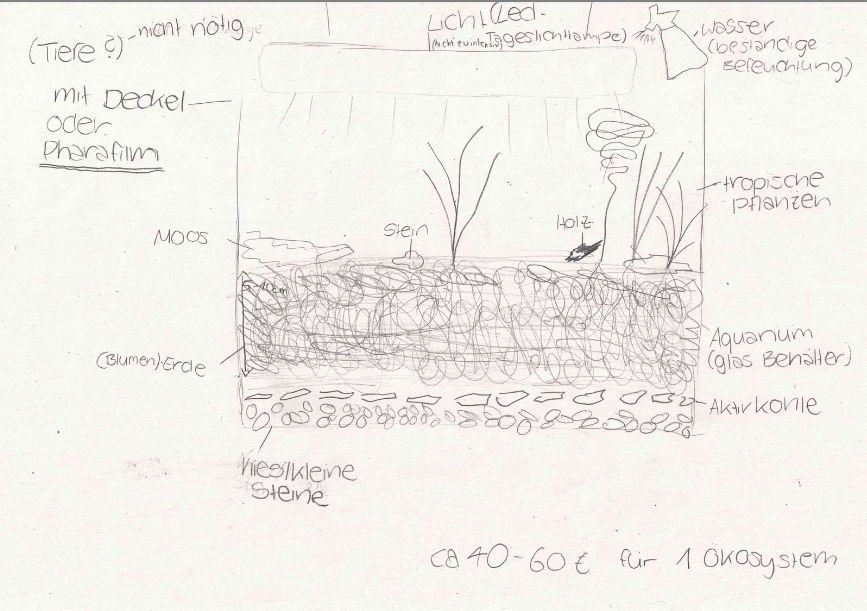 (Tiere ?) nicht nötig
mit Deckel
oder
Pharafilm
Licht (Led-
Tageslichtlampe)
(nicht zu intensiv)
wasser
(beständige
Befeuchtung)
tropische
pflanzen
Moos
Stein
Holz
5-10cm
(Blumen)-Erde
Aquarium
(glas Behälter)
Aktivkohle
Kies/kleine
Steine
ca 40-60 € für 1 Ökosystem